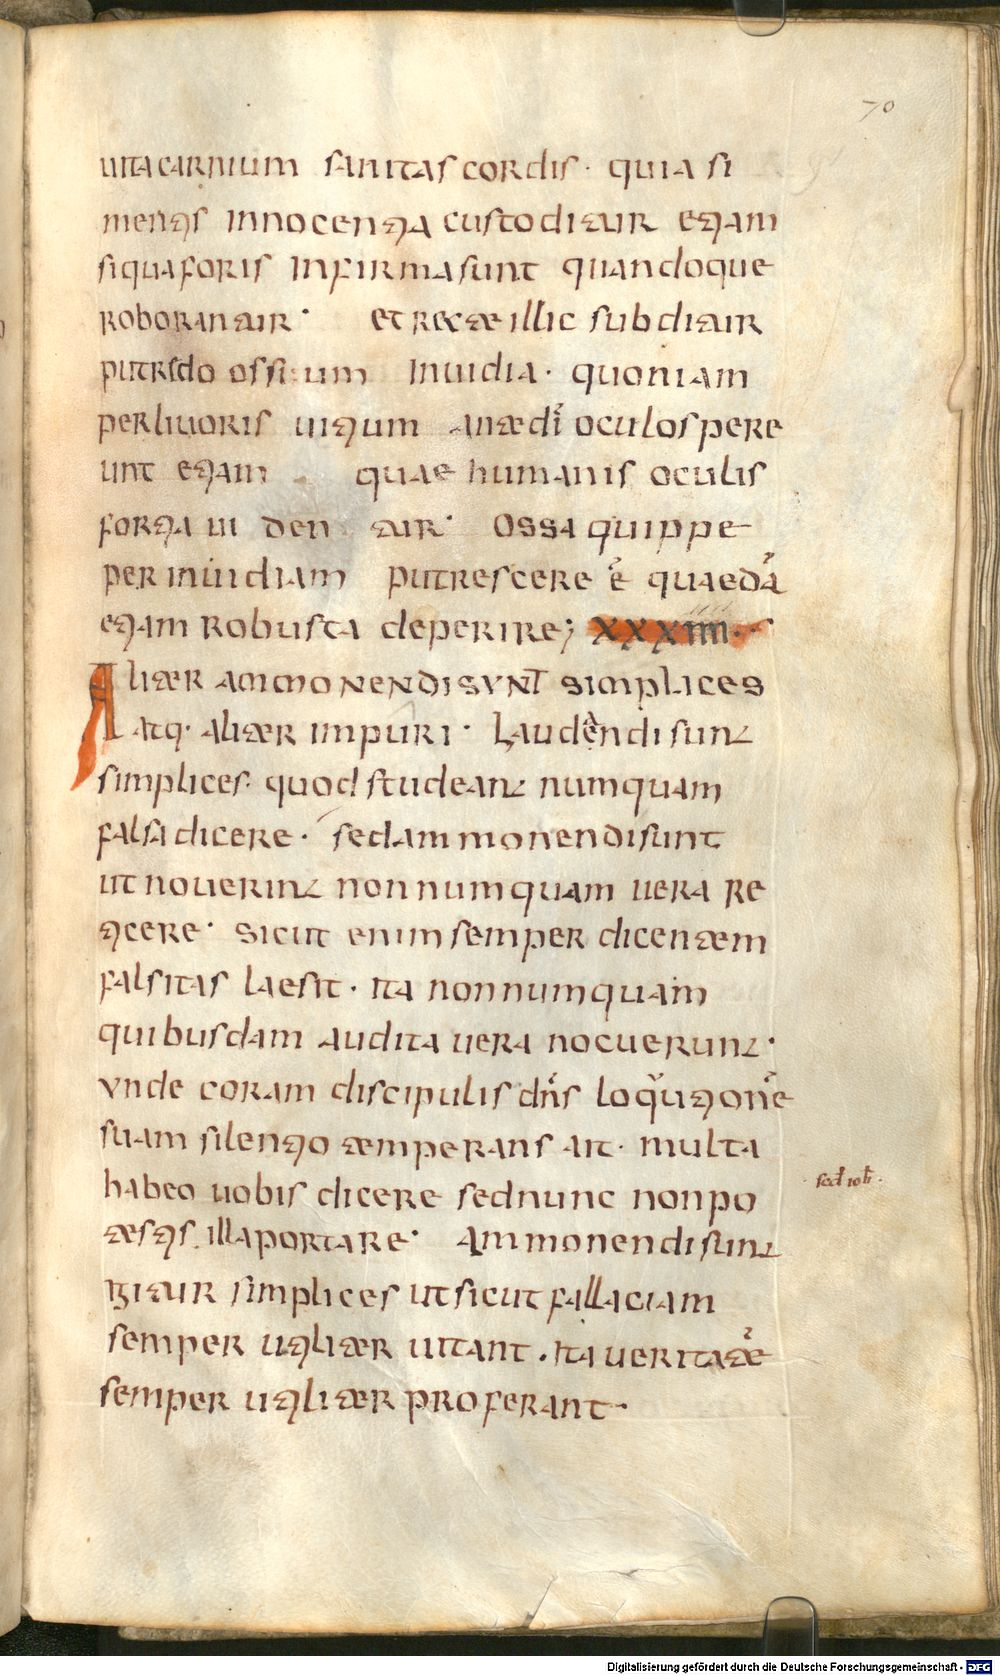 70
uita carnium sanitas cordis · quia si
mentis innocentia custoditur etiam
siqua foris infirma sunt quandoque
roborantur · et recte illic subditur
putredo ossium inuidia · quoniam
per liuoris uitium ante dī oculos pere
unt etiam quae humanis oculis
fortia uidentur · ossa quippe
per inuidiam putrescere ē quaedā
etiam robusta deperire; XXXIIII ·
Aliter ammonendi sunt simplices
atq· aliter impuri · Laudendi sunt
simplices · quod studeant numquam
falsa dicere · sed ammonendi sunt
ut nouerint nonnumquam uera re
ticere · sicut enim semper dicentem
falsitas laesit · ita nonnumquam
quibusdam audita uera nocuerunt ·
unde coram discipulis dn̄s loqutionē
suam silentio temperans ait · multa
habeo uobis dicere sed nunc non po
testis illa portare · Ammonendi sunt
igitur simplices ut sicut fallaciam
semper utiliter uitant · ita ueritatē
semper utiliter proferant ·
Digitalisierung gefördert durch die Deutsche Forschungsgemeinschaft - DFG